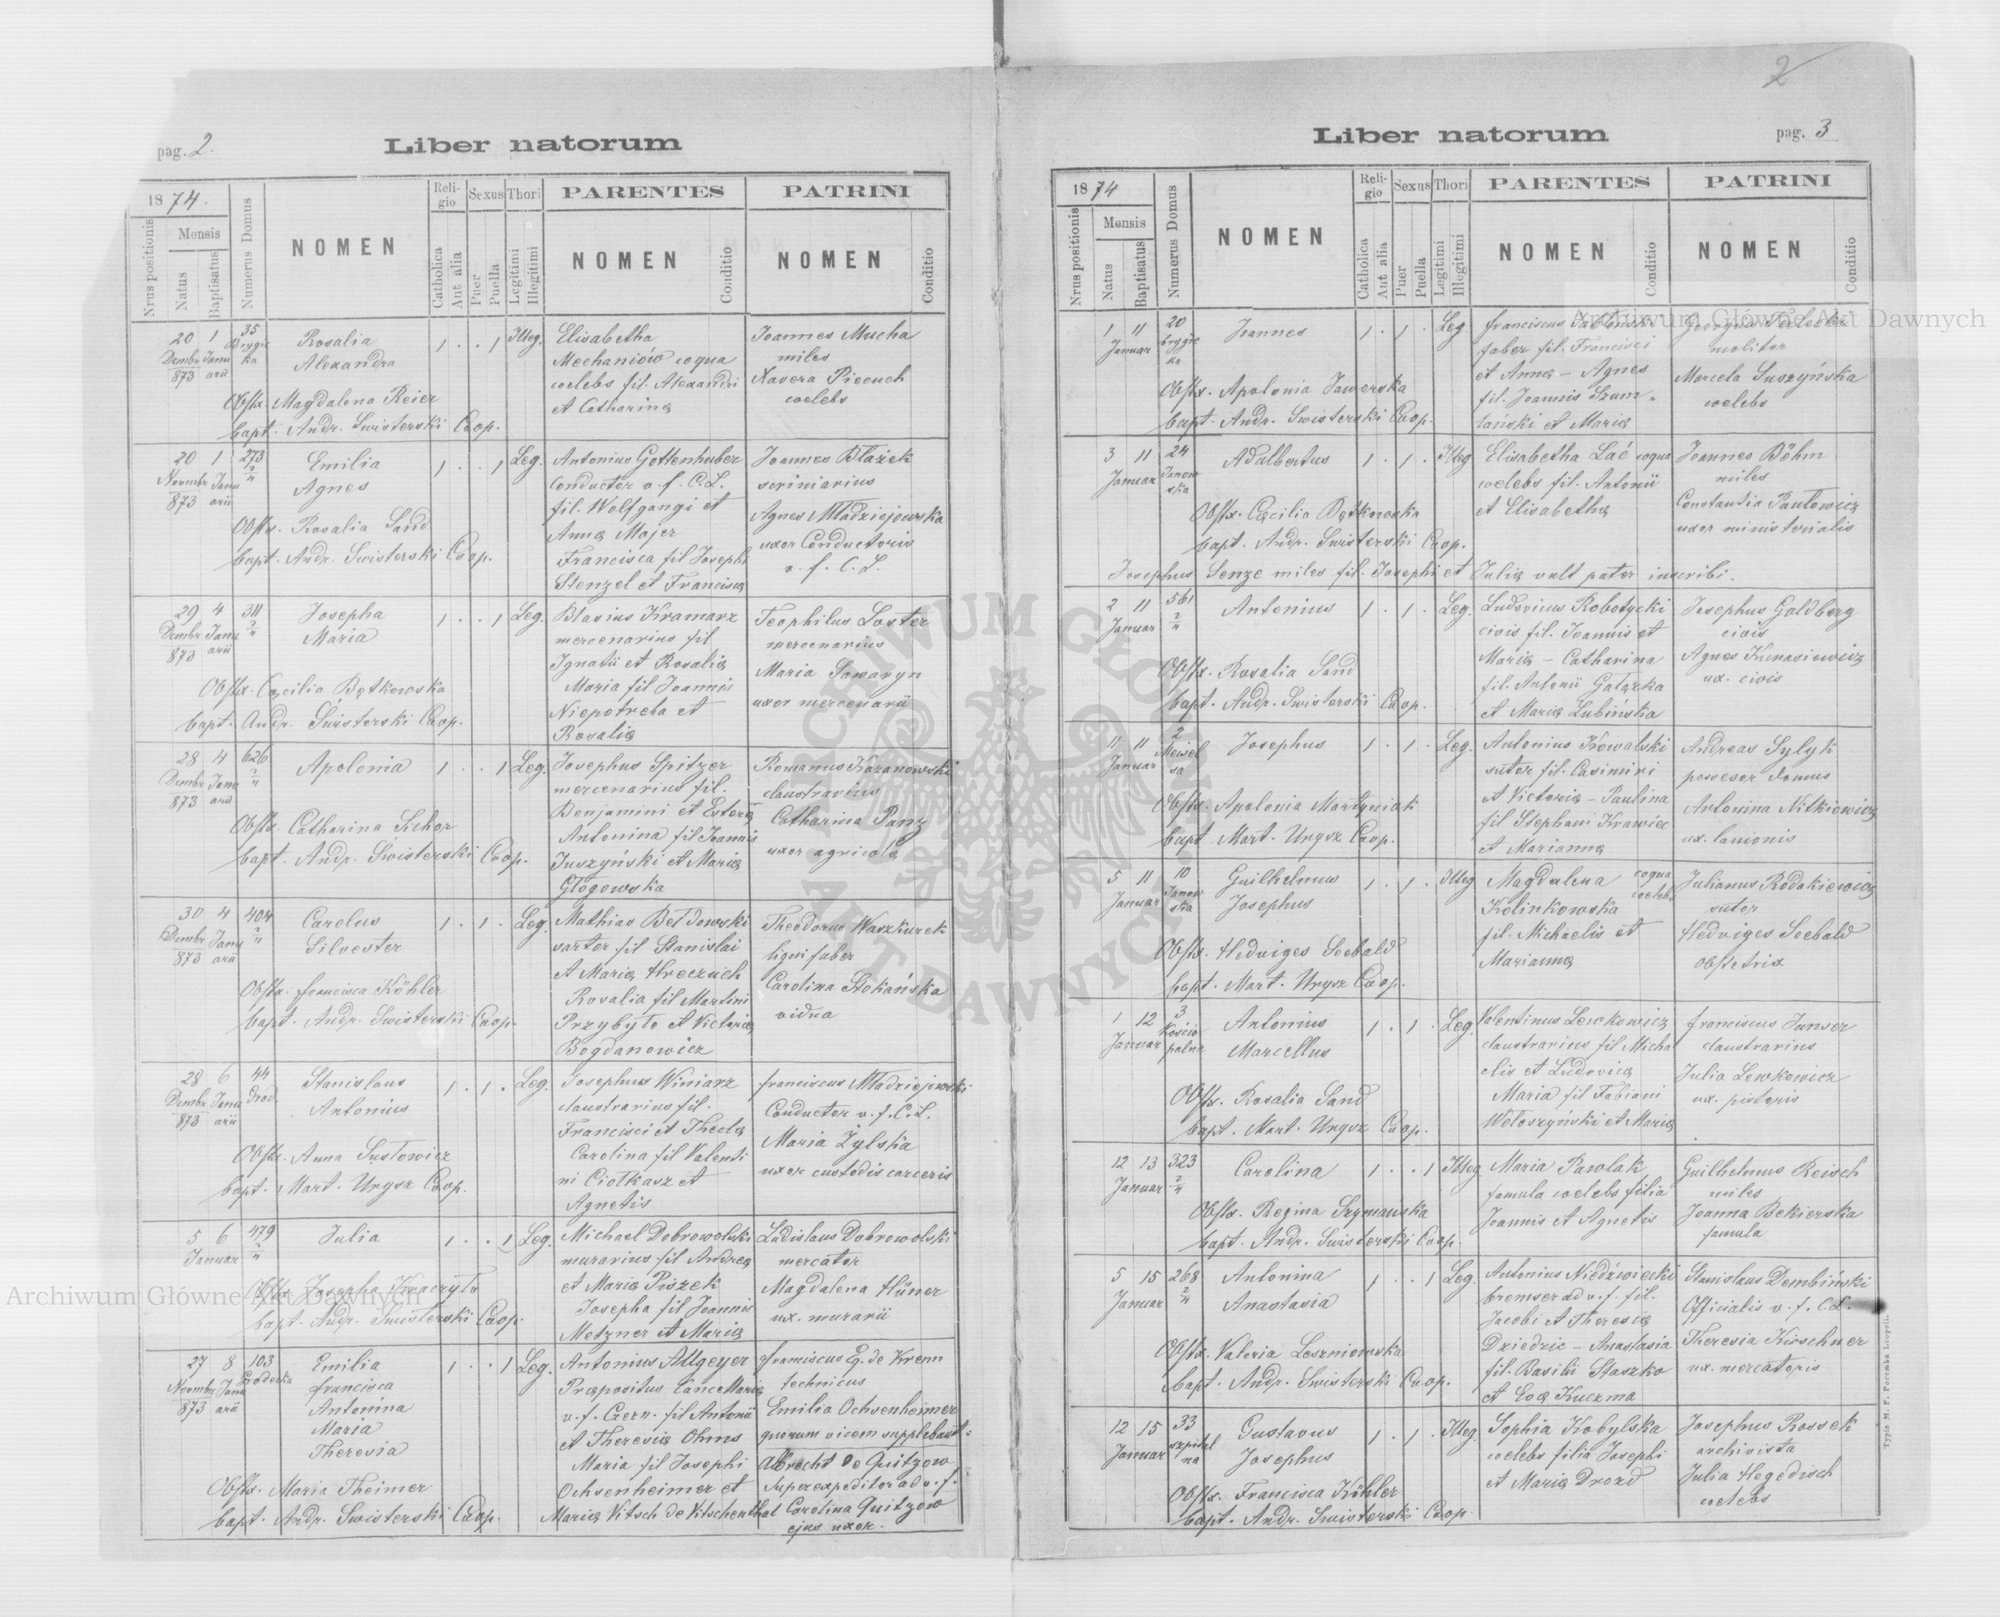 pag. 2.
Liber natorum
1874.
Nrus positionis
Mensis
Natus
Baptisatus
Numerus Domus
NOMEN
Religio
Catholica
Aut alia
Sexus
Puer
Puella
Thori
Legitimi
Illegitimi
PARENTES
NOMEN
Conditio
PATRINI
NOMEN
Conditio
20 Dembr 873
1 Januarii
35
Rosalia
Alexandra
1 . . 1 Illeg.
Obstx. Magdalena Reier
bapt. Andr. Swisterski Coop.
Elisabetha
Mechaniów coqua
coelebs fil. Alexandri
et Catharina
Joannes Mucha
miles
Xavera Piecuch
coelebs
20 Novembr 873
1 Januarii
273 2/4
Emilia
Agnes
1 . . 1 Leg.
Obstx. Rosalia Sand
bapt. Andr. Swisterski Coop.
Antonius Gottenhuber
Conductor v. f. C. L.
fil. Wolfgangi et
Anna Majer
Francisca fil Josephi
Stenzel et Francisca
Joannes Blažek
scriniarius
Agnes Mładziejowska
uxor Conductoris
v. f. C. L.
29 Dembr 873
4 Januarii
311 2/4
Josepha
Maria
1 . . 1 Leg.
Obstx. Cæcilia Bętkowska
bapt. Andr. Swisterski Coop.
Blasius Kramarz
mercenarius fil
Ignatii et Rosalia
Maria fil Joannis
Niepotreba et
Rosalia
Teophilus Soster
mercenarius
Maria Sawaryn
uxor mercenarii
28 Dembr 873
4 Januarii
626 2/4
Apolonia
1 . . 1 Leg.
Obstx. Catharina Sichor
bapt. Andr. Swisterski Coop.
Josephus Spitzer
mercenarius fil.
Benjamini et Estera
Antonina fil Joannis
Juszyński et Maria
Głogowska
Romanus Kozanowski
claustrarius
Catharina Panz
uxor agricola
30 Dembr 873
4 Januarii
404 2/4
Carolus
Silvester
1 . 1 . Leg.
Obstx. Francisca Köhler
bapt. Andr. Swisterski Coop.
Mathias Bełdowski
sartor fil Stanislai
et Maria Hreczuch
Rosalia fil Martini
Przybyło et Victoria
Bogdanowicz
Theodorus Waszkurek
lignifaber
Carolina Stokańska
vidua
28 Dembr 873
6 Januarii
44
Grod.
Stanislaus
Antonius
1 . 1 . Leg.
Obstx. Anna Sustowicz
bapt. Mart. Urysz Coop.
Josephus Winiarz
claustrarius fil.
Francisci et Thecla
Carolina fil Valenti
ni Ciołkasz et
Agnetis
Franciscus Mładziejowski
Conductor v. f. C. L.
Maria Żylska
uxor custodis carceris
5 Januar
6
479 2/4
Julia
1 . . 1 Leg.
bapt. Andr. Swisterski Coop.
Michael Dobrowolski
murarius fil Andrea
et Maria Piszek
Josepha fil Joannis
Metzner et Maria
Ladislaus Dobrowolski
mercator
Magdalena Hüner
ux. murarii
27 Novembr 873
8 Januarii
103
Grodecka
Emilia
Francisca
Antonina
Maria
Theresia
1 . . 1 Leg.
Obstx. Maria Theimer
bapt. Andr. Swisterski Coop.
Antonius Allgeyer
Præpositus
v. f. Czern. fil Antonii
et Theresia Ohms
Maria fil Josephi
Ochsenheimer et
Maria Vitsch de Vitschenthal
Franciscus Eq. de Krenn
technicus
Emilia Ochsenheimer
quorum vicem supplebant
Albrecht de Quitzow
Superexpeditor ad v. f.
Carolina Quitzow
ejus uxor.
2
Liber natorum
pag. 3
1874
Nrus positionis
Mensis
Natus
Baptisatus
Numerus Domus
NOMEN
Religio
Catholica
Aut alia
Sexus
Puer
Puella
Thori
Legitimi
Illegitimi
PARENTES
NOMEN
Conditio
PATRINI
NOMEN
Conditio
1 Januar
11
20
Joannes
1 . 1 . Leg.
Obstx. Apolonia Jaworska
bapt. Andr. Swisterski Coop.
Franciscus
faber fil. Francisci
et Anna – Agnes
fil. Joannis Szum-
lański et Maria
Georgius
molitor
Marcela Suszyńska
coelebs
3 Januar
11
24
Janowska
Adalbertus
1 . 1 . Illeg
Obstx. Cæcilia Bętkowska
bapt. Andr. Swisterski Coop.
Elisabetha Lać coqua
coelebs fil. Antonii
et Elisabetha
Joannes Böhm
miles
Constantia Pawłowicz
uxor ministerialis
Josephus Senze miles fil. Josephi et Julia vult pater inscribi.
2 Januar
11
561 2/4
Antonius
1 . 1 . Leg.
Obstx. Rosalia Sand
bapt. Andr. Swisterski Coop.
Ludovicus Robotycki
civis fil. Joannis et
Maria – Catharina
fil. Antonii Gałązka
et Maria Lubińska
Josephus Goldberg
civis
Agnes Kurasiewicz
ux. civis
11 Januar
11
2
Josephus
1 . 1 . Leg.
Obstx. Apolonia Martyniak
bapt Mart. Urysz Coop.
Antonius Kowalski
sutor fil. Casimiri
et Victoria – Paulina
fil Stephani Krawiec
et Marianna
Andreas Sylyk
possesor domus
Antonina Nitkiewicz
ux. lanionis
5 Januar
11
10
Janowska
Guilhelmus
Josephus
1 . 1 . Illeg
Obstx. Hedviges Seebald
bapt. Mart. Urysz Coop.
Magdalena coqua
Kolinkowska coelebs
fil. Michaelis et
Marianna
Julianus Rodakiewicz
sutor
Hedviges Seebald
obstetrix
1 Januar
12
3
Antonius
Marcellus
1 . 1 . Leg.
Obstx. Rosalia Sand
bapt. Mart. Urysz Coop.
Valentinus Lewkowicz
claustrarius fil Micha
elis et Ludovica
Maria fil Fabiani
Wołoszyński et Maria
Franciscus Junser
claustrarius
Julia Lewkowicz
ux. pistoris
12 Januar
13
323 2/4
Carolina
1 . . 1 Illeg
Obstx. Regina Szymańska
bapt. Andr. Swisterski Coop.
Maria Pawlak
famula coelebs filia
Joannis et Agnetis
Guilhelmus Reisch
miles
Joanna Bekierska
famula
5 Januar
15
268 2/4
Antonina
Anastasia
1 . . 1 Leg.
Obstx. Valeria Leszniowska
bapt. Andr. Swisterski Coop.
Antonius Niedźwiecki
bremser ad v. f. fil.
Jacobi et Theresia
Dziedzic – Anastasia
fil. Basilii Staszko
et Eva Kuczma
Stanislaus Dembiński
Officialis v. f. C.L.
Theresia Kirschner
ux. mercatoris
12 Januar
15
33
szpitalna
Gustavus
Josephus
1 . 1 . Illeg
Obstx. Francisca Köhler
bapt. Andr. Swisterski Coop
Sophia Kobylska
coelebs filia Josephi
et Maria Drozd
Josephus Rossek
archivista
Julia Hegedisch
coelebs
Typis M. F. Poremba Leopoli.
Archiwum Główne Akt Dawnych
Archiwum Główne Akt Dawnych
ARCHIWUM GŁÓWNE AKT DAWNYCH